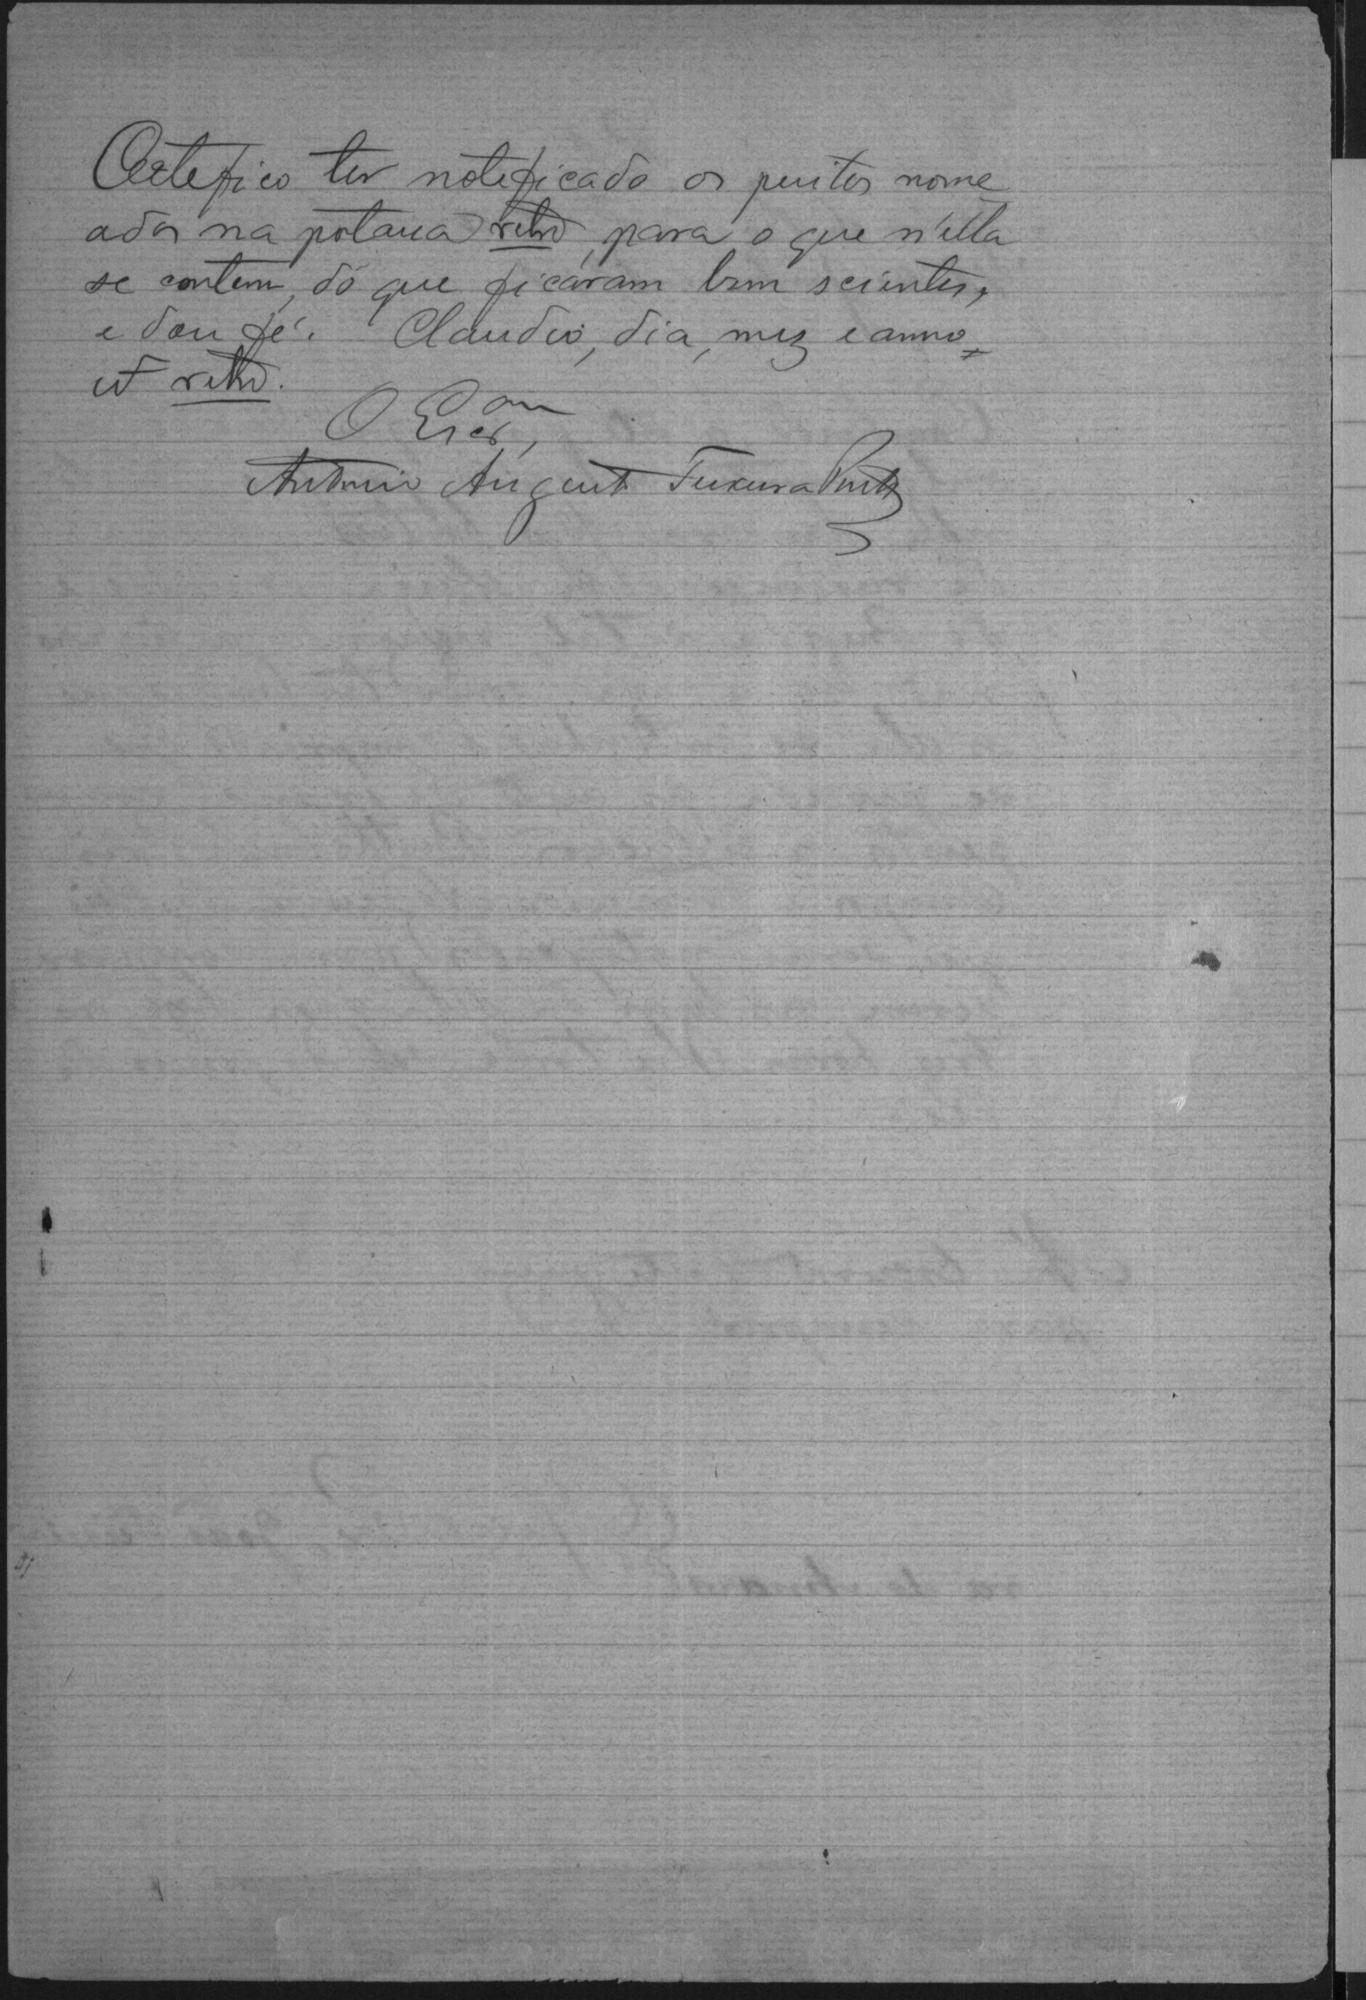 Certefico ter noteficado os peritos nome_
ados na potaria retro, para o que n'ella
se contem, do que ficáram bem scientes,
e dou fé. Claudio, dia, mez e anno_
ut retro.
O Escam,
Antonio Augusto Teixeira Pinto